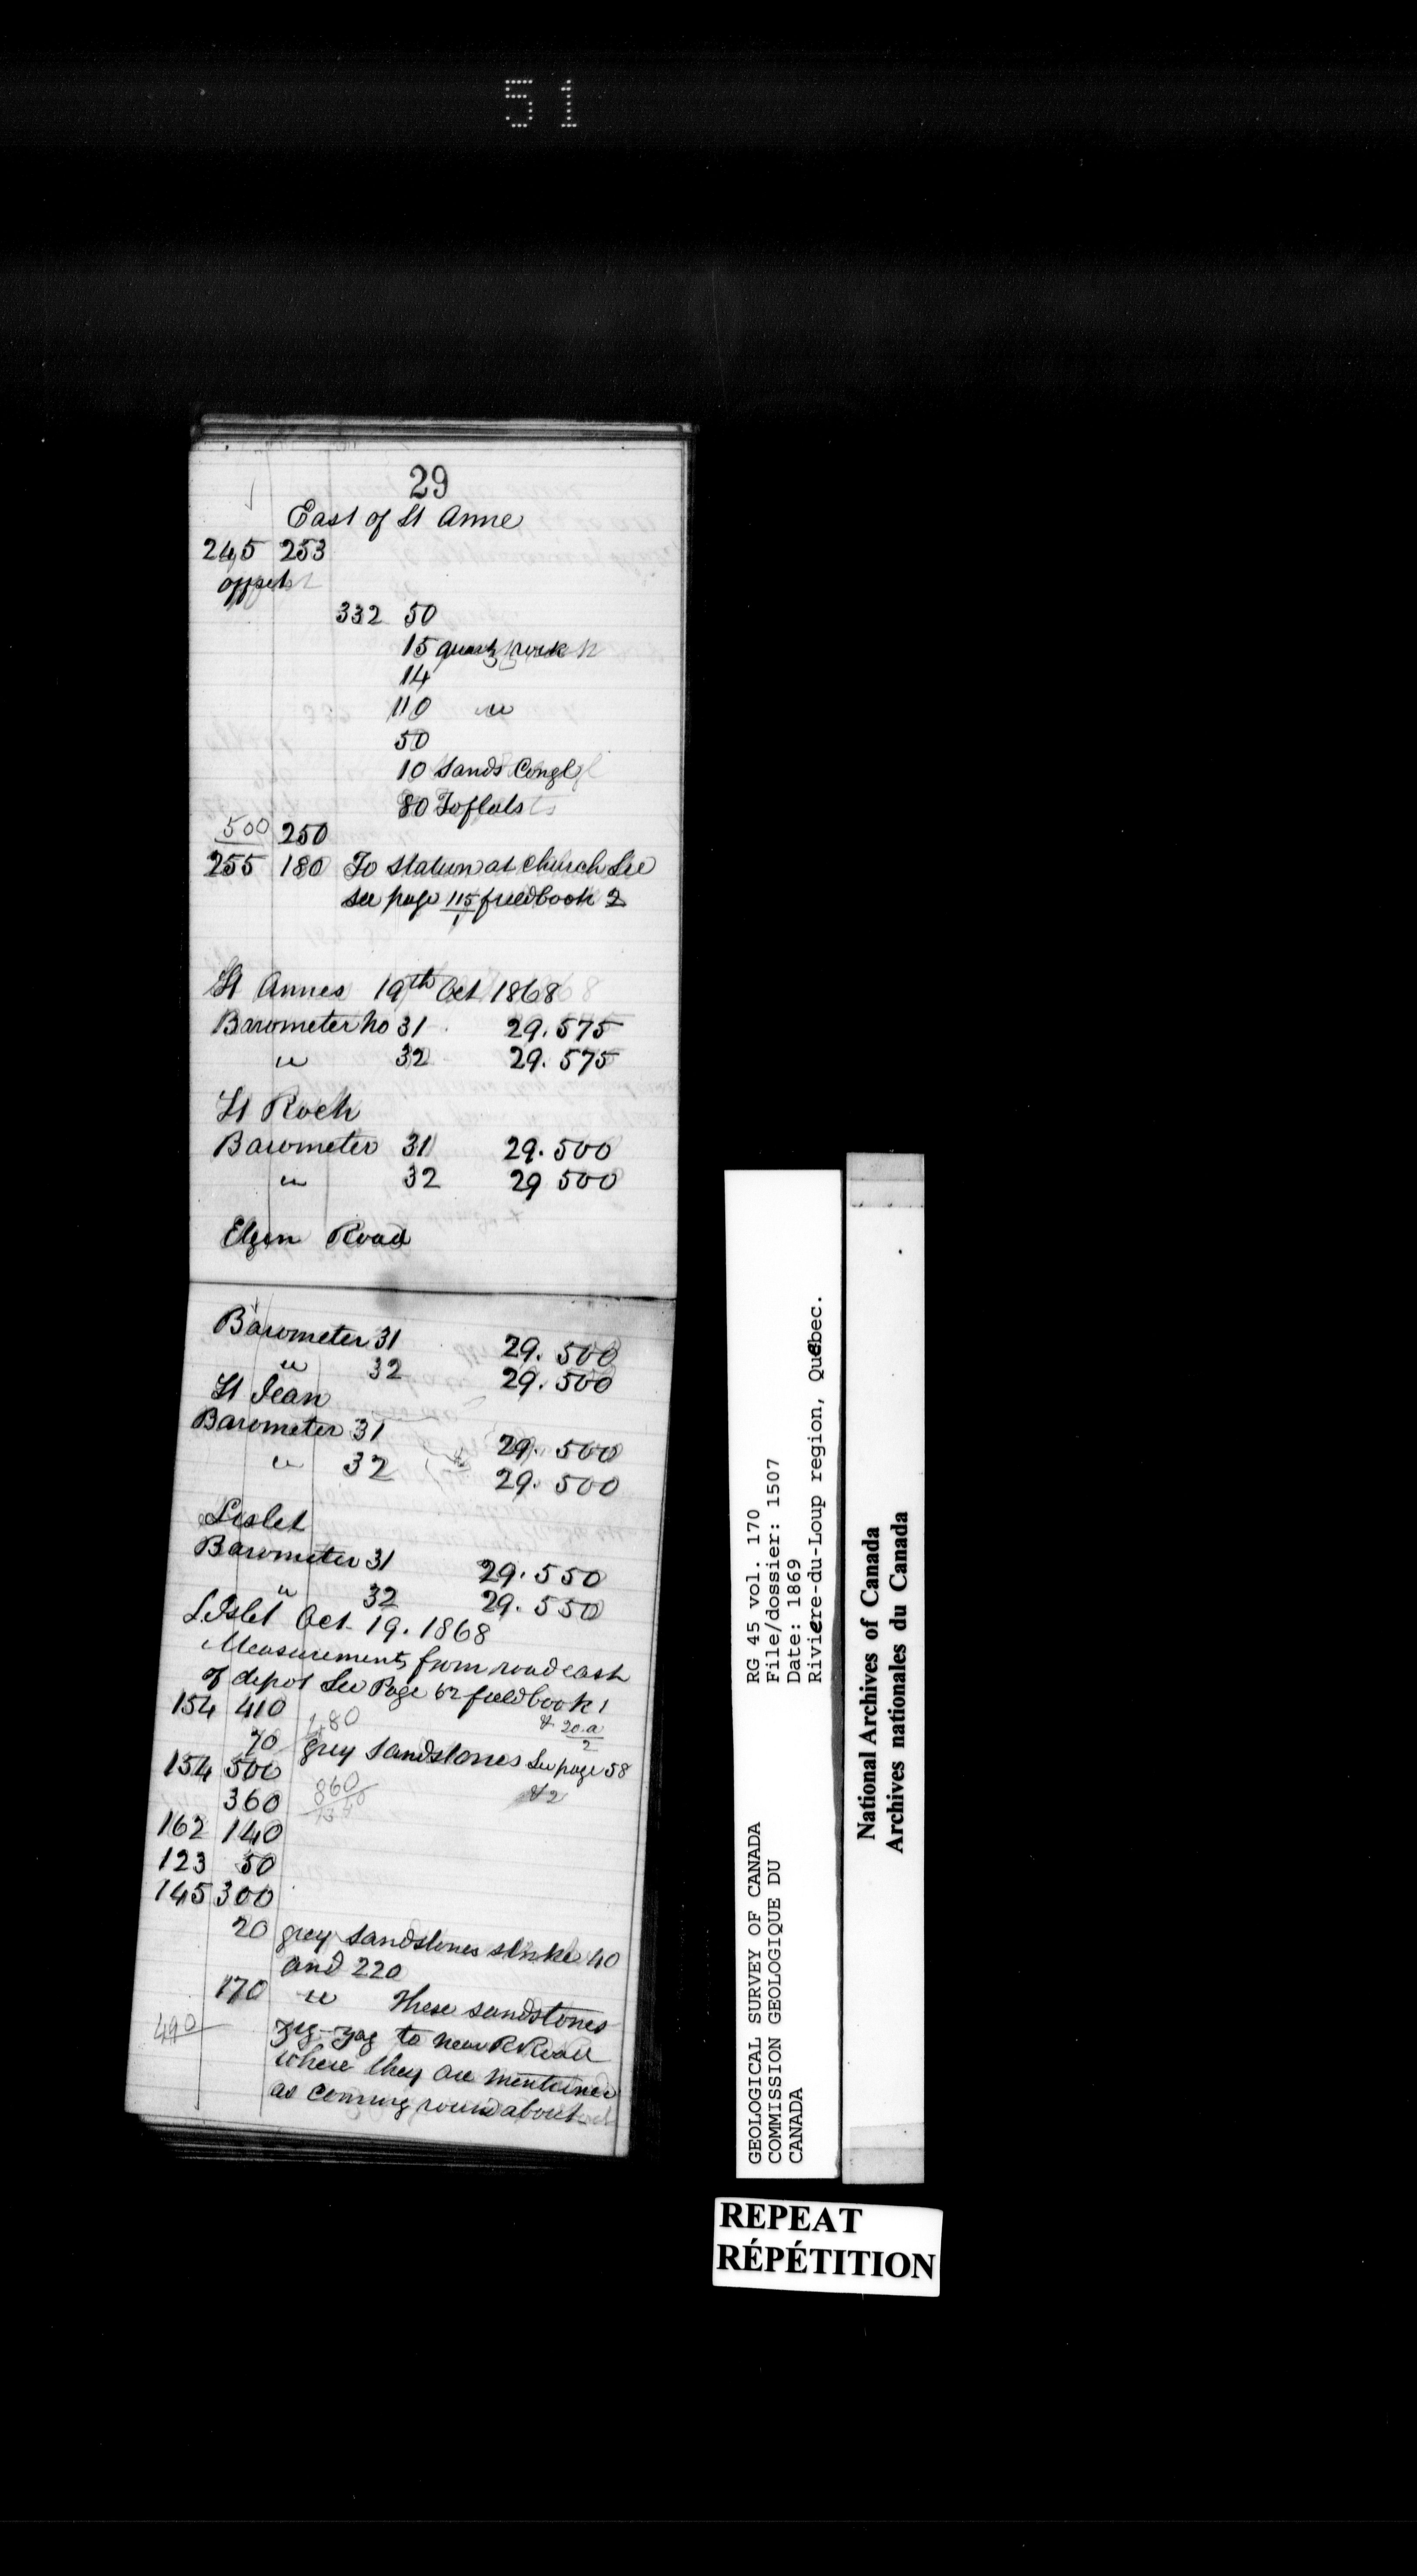 51
29
East of St Anne
245 253
offset
332 50
15 quartz rock
14
110 "
50
10 Sands Congl
80 To flats
500 250
255 180 To station at Church See
see page 115/1 fieldbook 2
St Annes 19th Oct 1868
Barometer no 31 29.575
" 32 29.575
St Roch
Barometer 31 29.500
" 32 29 500
Elgin Road
Barometer 31 29.500
" 32 29.500
St Jean
Barometer 31 29.500
" 32 29.500
Lislet
Barometer 31 29.550
" 32 29.550
L Islet Oct 19. 1868
Measurements from road east
of depot See Page 62 fieldbook 1
& 20.a/2
154 410
480
70 grey sandstones See page 58
& 2
154 500
360 860
1340
162 140
123 50
145 300
20 grey sandstones strike 40
and 220
170 " These sandstones
490 zig-zag to near R Road
where they are mentioned
as coming round about
GEOLOGICAL SURVEY OF CANADA
COMMISSION GEOLOGIQUE DU
CANADA
RG 45 vol. 170
File/dossier: 1507
Date: 1869
Riviere-du-Loup region, Quebec.
National Archives of Canada
Archives nationales du Canada
REPEAT
RÉPÉTITION